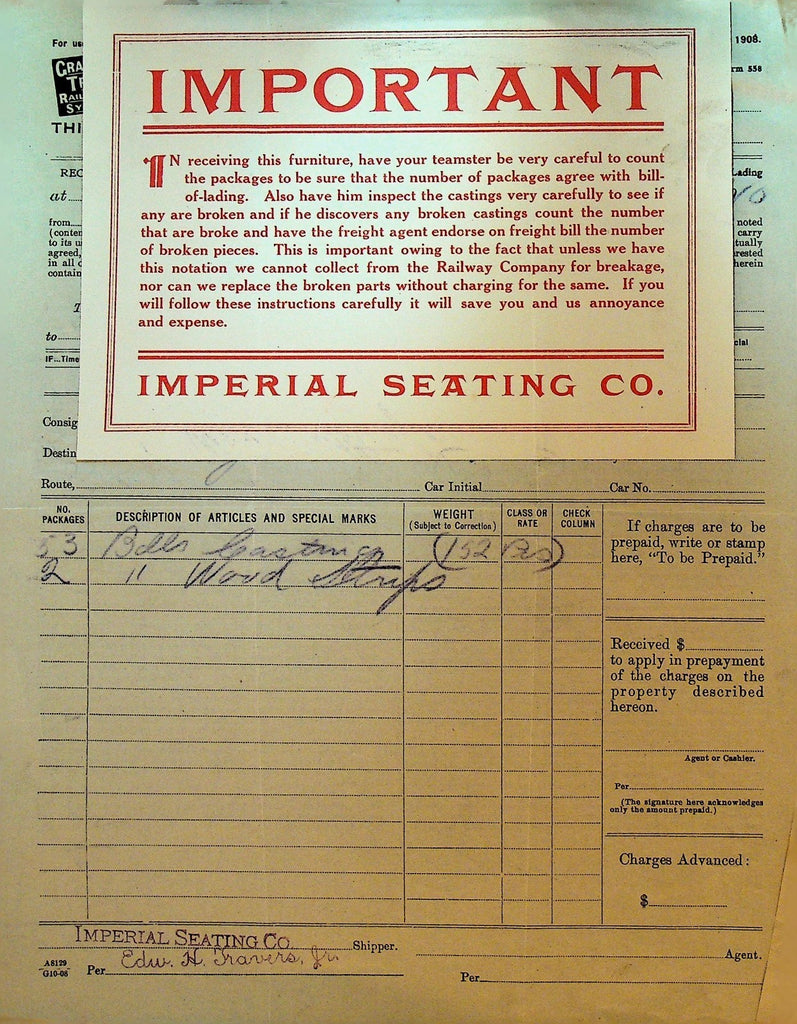 For
1908.
558
THI
IMPORTANT
IN receiving this furniture, have your teamster be very careful to count
the packages to be sure that the number of packages agree with bill-
of-lading. Also have him inspect the castings very carefully to see if
any are broken and if he discovers any broken castings count the number
that are broke and have the freight agent endorse on freight bill the number
of broken pieces. This is important owing to the fact that unless we have
this notation we cannot collect from the Railway Company for breakage,
nor can we replace the broken parts without charging for the same. If you
will follow these instructions carefully it will save you and us annoyance
and expense.
IMPERIAL SEATING CO.
REC
Lading
at
from
noted
(conten
carry
to its u
tually
agreed,
rested
in all c
herein
contain
to
cial
IF...Time
Consig
Destin
Route,
Car Initial
Car No.
NO. PACKAGES
DESCRIPTION OF ARTICLES AND SPECIAL MARKS
WEIGHT (Subject to Correction)
CLASS OR RATE
CHECK COLUMN
53 Bdls Castings (152 Pcs)
2 " Wood Strips
If charges are to be
prepaid, write or stamp
here, "To be Prepaid."
Received $
to apply in prepayment
of the charges on the
property described
hereon.
Agent or Cashier.
Per
(The signature here acknowledges
only the amount prepaid.)
Charges Advanced:
$
IMPERIAL SEATING CO. Shipper.
Agent.
A8129
G10-08
Per Edw. H. Travers, Jr.
Per